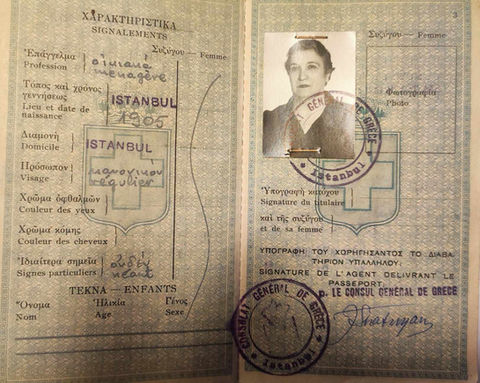 ΧΑΡΑΚΤΗΡΙΣΤΙΚΑ
SIGNALEMENTS
Συζύγου — Femme
Ἐπάγγελμα
Profession
οἰκιακά
ménagère
Τόπος καὶ χρόνος
γεννήσεως
Lieu et date de
naissance
ISTANBUL
1905
Διαμονή
Domicile
ISTANBUL
Πρόσωπον
Visage
κανονικόν
régulier
Χρῶμα ὀφθαλμῶν
Couleur des yeux
Χρῶμα κόμης
Couleur des cheveux
Ἰδιαίτερα σημεῖα
Signes particuliers
οὐδέν
néant
ΤΕΚΝΑ — ENFANTS
Ὄνομα
Nom
Ἡλικία
Age
Γένος
Sexe
3
Συζύγου — Femme
Φωτογραφία
Photo
GÉNÉRAL DE GRÈCE
Istanbul
Ὑπογραφὴ κατόχου
Signature du titulaire
καὶ τῆς συζύγου
et de sa femme
ΥΠΟΓΡΑΦΗ ΤΟΥ ΧΟΡΗΓΗΣΑΝΤΟΣ ΤΟ ΔΙΑΒΑ
ΤΗΡΙΟΝ ΥΠΑΛΛΗΛΟΥ.
SIGNATURE DE L'AGENT DELIVRANT LE
PASSEPORT
P. LE CONSUL GÉNÉRAL DE GRÈCE
CONSULAT GÉNÉRAL DE GRÈCE
Istanbul